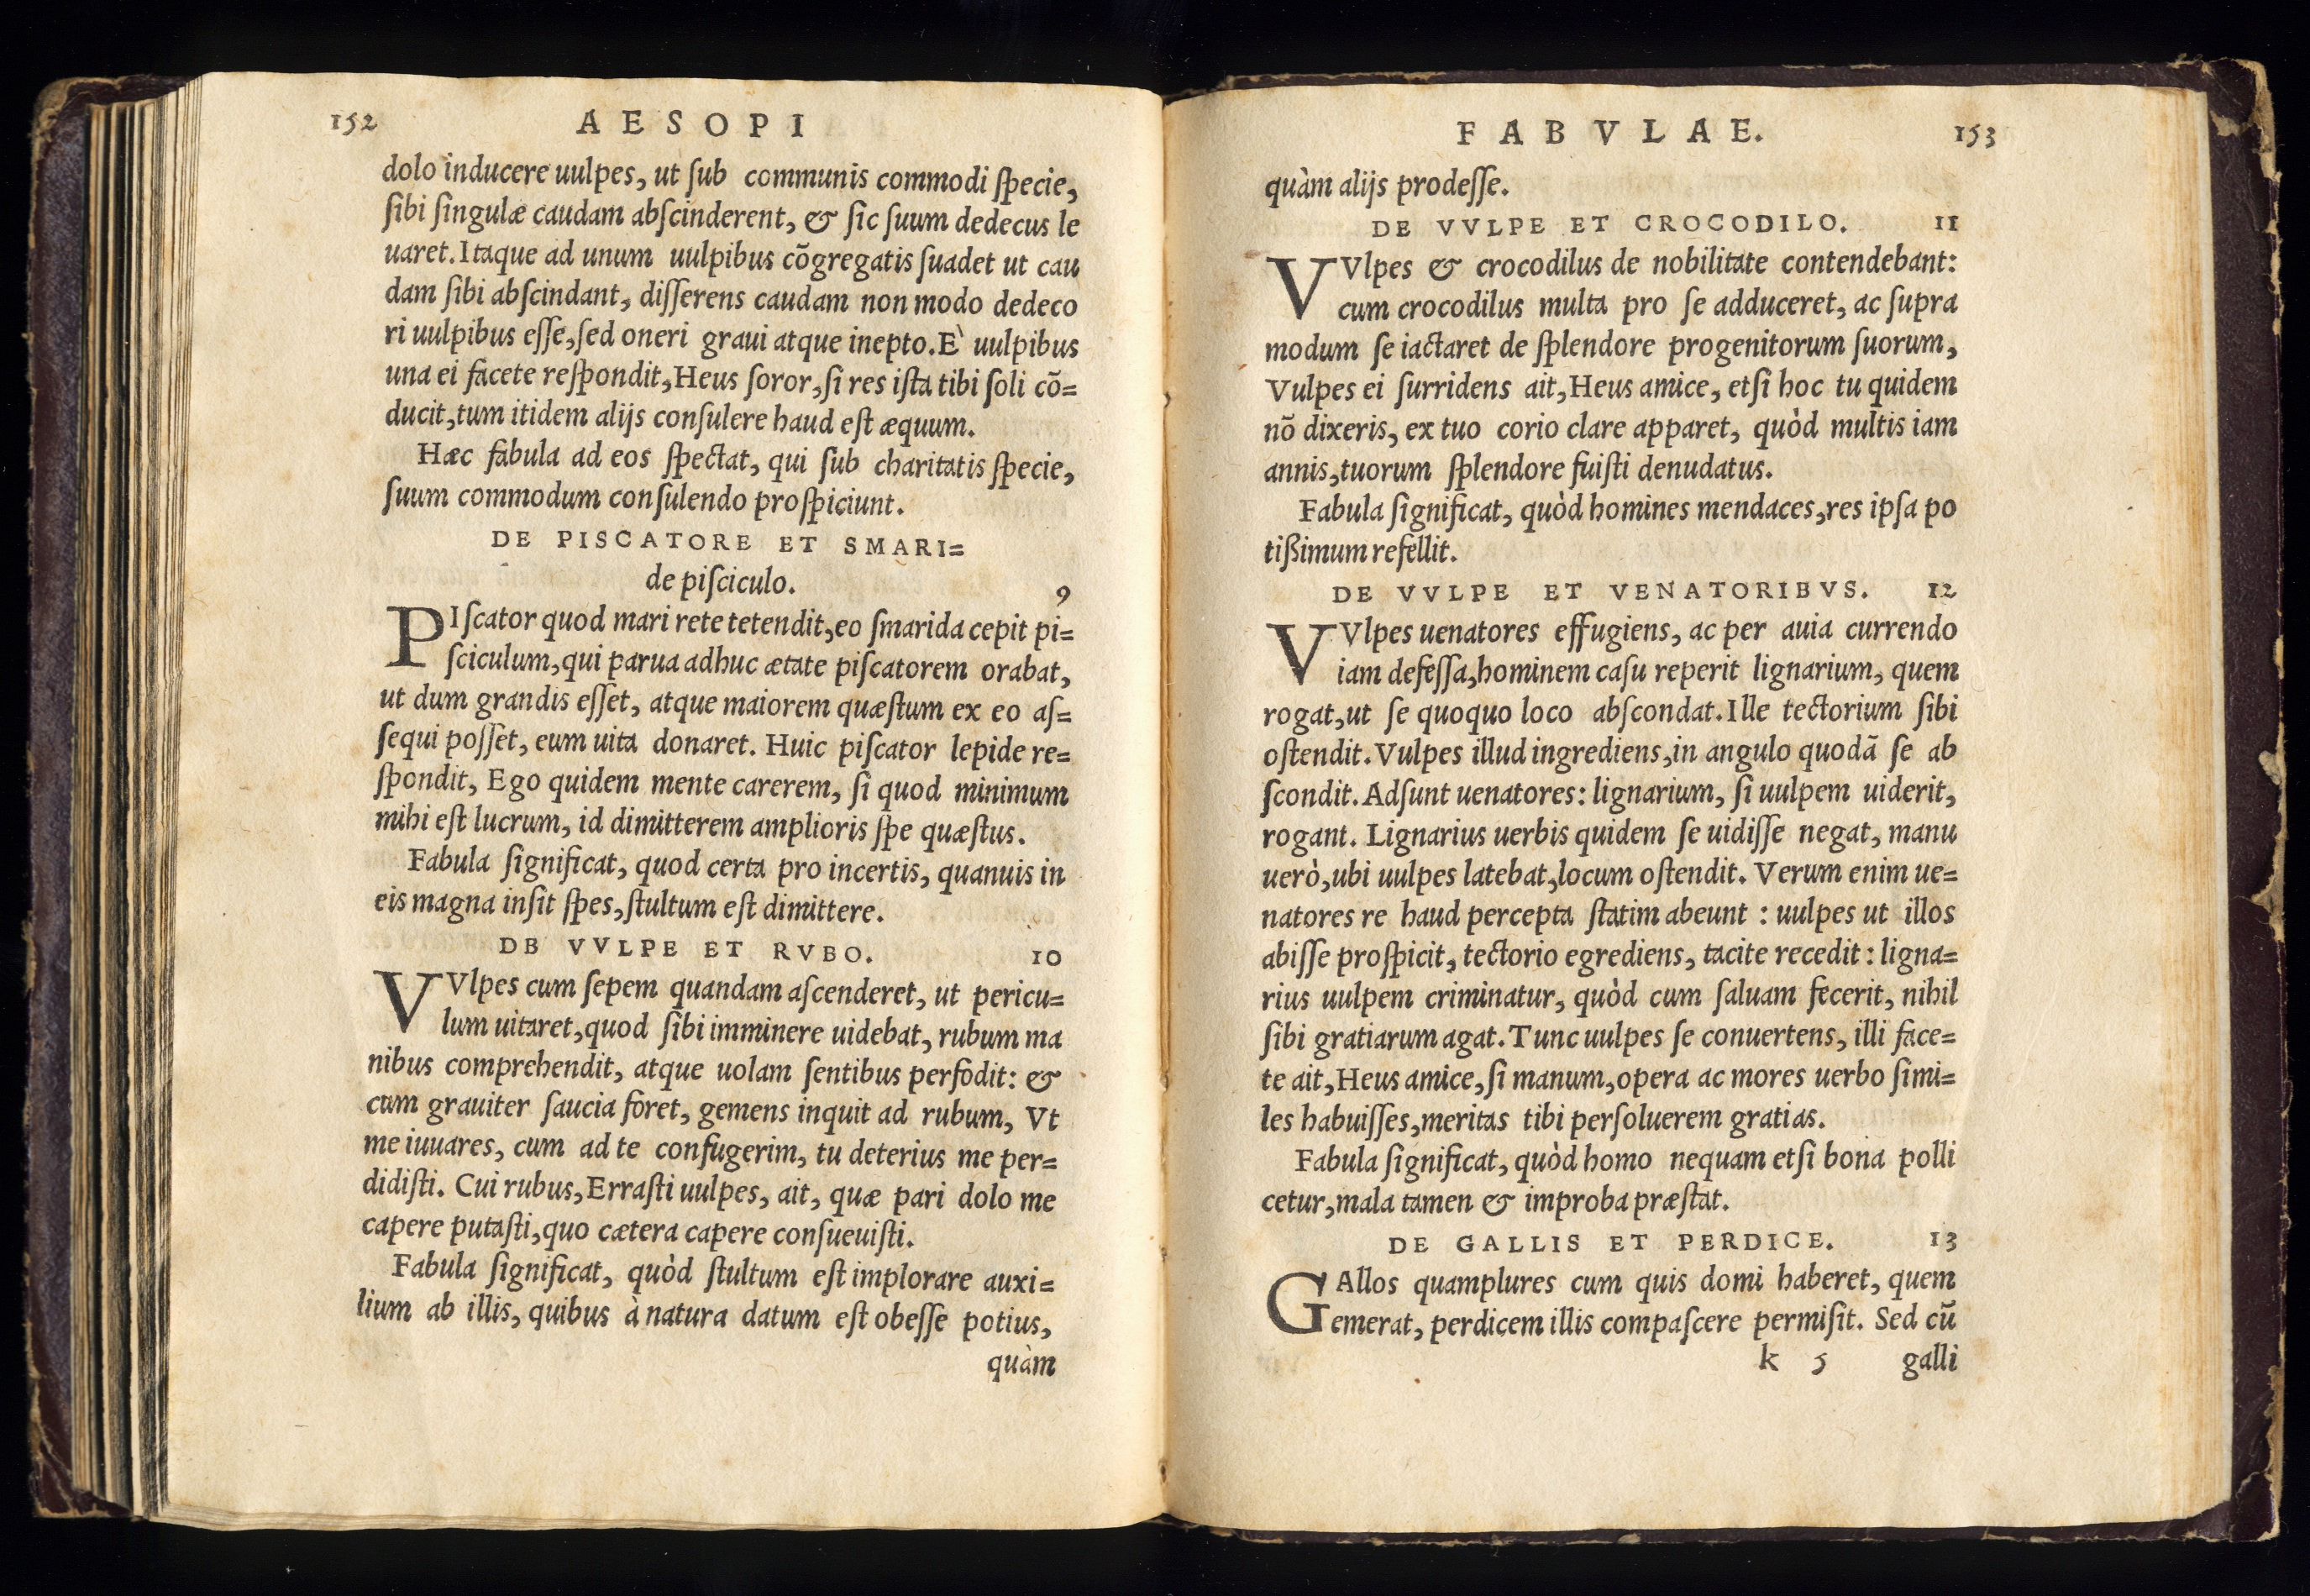 152
AESOPI
dolo inducere uulpes, ut ſub communis commodi ſpecie,
ſibi ſingulæ caudam abſcinderent, & ſic ſuum dedecus le
uaret. Itaque ad unum uulpibus cõgregatis ſuadet ut cau
dam ſibi abſcindant, diſſerens caudam non modo dedeco
ri uulpibus eſſe, ſed oneri graui atque inepto. E` uulpibus
una ei facete reſpondit, Heus ſoror, ſi res iſta tibi ſoli cõ=
ducit, tum itidem alijs conſulere haud eſt æquum.
Hæc fabula ad eos ſpectat, qui ſub charitatis ſpecie,
ſuum commodum conſulendo proſpiciunt.
DE PISCATORE ET SMARI=
de piſciculo. 9
PIſcator quod mari rete tetendit, eo ſmarida cepit pi=
ſciculum, qui parua adhuc ætate piſcatorem orabat,
ut dum grandis eſſet, atque maiorem quæſtum ex eo aſ=
ſequi poſſet, eum uita donaret. Huic piſcator lepide re=
ſpondit, Ego quidem mente carerem, ſi quod minimum
mihi eſt lucrum, id dimitterem amplioris ſpe quæſtus.
Fabula ſignificat, quod certa pro incertis, quanuis in
eis magna inſit ſpes, ſtultum eſt dimittere.
DB VVLPE ET RVBO. 10
VVlpes cum ſepem quandam aſcenderet, ut pericu=
lum uitaret, quod ſibi imminere uidebat, rubum ma
nibus comprehendit, atque uolam ſentibus perfodit: &
cum grauiter ſaucia foret, gemens inquit ad rubum, Vt
me iuuares, cum ad te confugerim, tu deterius me per=
didiſti. Cui rubus, Erraſti uulpes, ait, quæ pari dolo me
capere putaſti, quo cætera capere conſueuiſti.
Fabula ſignificat, quòd ſtultum eſt implorare auxi=
lium ab illis, quibus à natura datum eſt obeſſe potius,
quàm
FABVLAE. 153
quàm alijs prodeſſe.
DE VVLPE ET CROCODILO. 11
VVlpes & crocodilus de nobilitate contendebant:
cum crocodilus multa pro ſe adduceret, ac ſupra
modum ſe iactaret de ſplendore progenitorum ſuorum,
Vulpes ei ſurridens ait, Heus amice, etſi hoc tu quidem
nõ dixeris, ex tuo corio clare apparet, quòd multis iam
annis, tuorum ſplendore fuiſti denudatus.
Fabula ſignificat, quòd homines mendaces, res ipſa po
tißimum refellit.
DE VVLPE ET VENATORIBVS. 12
VVlpes uenatores effugiens, ac per auia currendo
iam defeſſa, hominem caſu reperit lignarium, quem
rogat, ut ſe quoquo loco abſcondat. Ille tectorium ſibi
oſtendit. Vulpes illud ingrediens, in angulo quodã ſe ab
ſcondit. Adſunt uenatores: lignarium, ſi uulpem uiderit,
rogant. Lignarius uerbis quidem ſe uidiſſe negat, manu
uerò, ubi uulpes latebat, locum oſtendit. Verum enim ue=
natores re haud percepta ſtatim abeunt : uulpes ut illos
abiſſe proſpicit, tectorio egrediens, tacite recedit : ligna=
rius uulpem criminatur, quòd cum ſaluam fecerit, nihil
ſibi gratiarum agat. Tunc uulpes ſe conuertens, illi face=
te ait, Heus amice, ſi manum, opera ac mores uerbo ſimi=
les habuiſſes, meritas tibi perſoluerem gratias.
Fabula ſignificat, quòd homo nequam etſi bona polli
cetur, mala tamen & improba præſtat.
DE GALLIS ET PERDICE. 13
GAllos quamplures cum quis domi haberet, quem
emerat, perdicem illis compaſcere permiſit. Sed cũ
k 5 galli